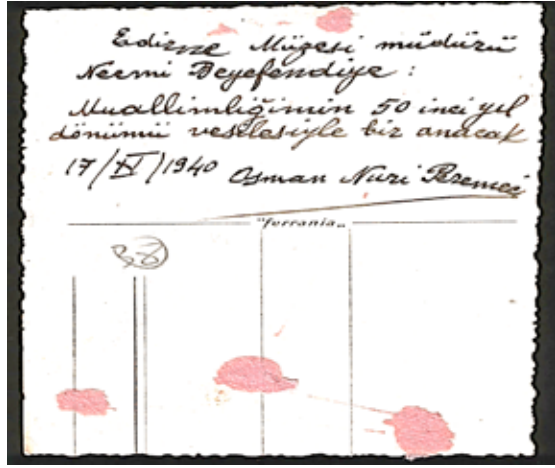 Edirne Müzesi müdürü
Necmi Beyefendiye :
Muallimliğimin 50 inci yıl
dönümü vesilesiyle bir anacak
17/XI/1940 Osman Nuri Peremeci
"ferrania"
38